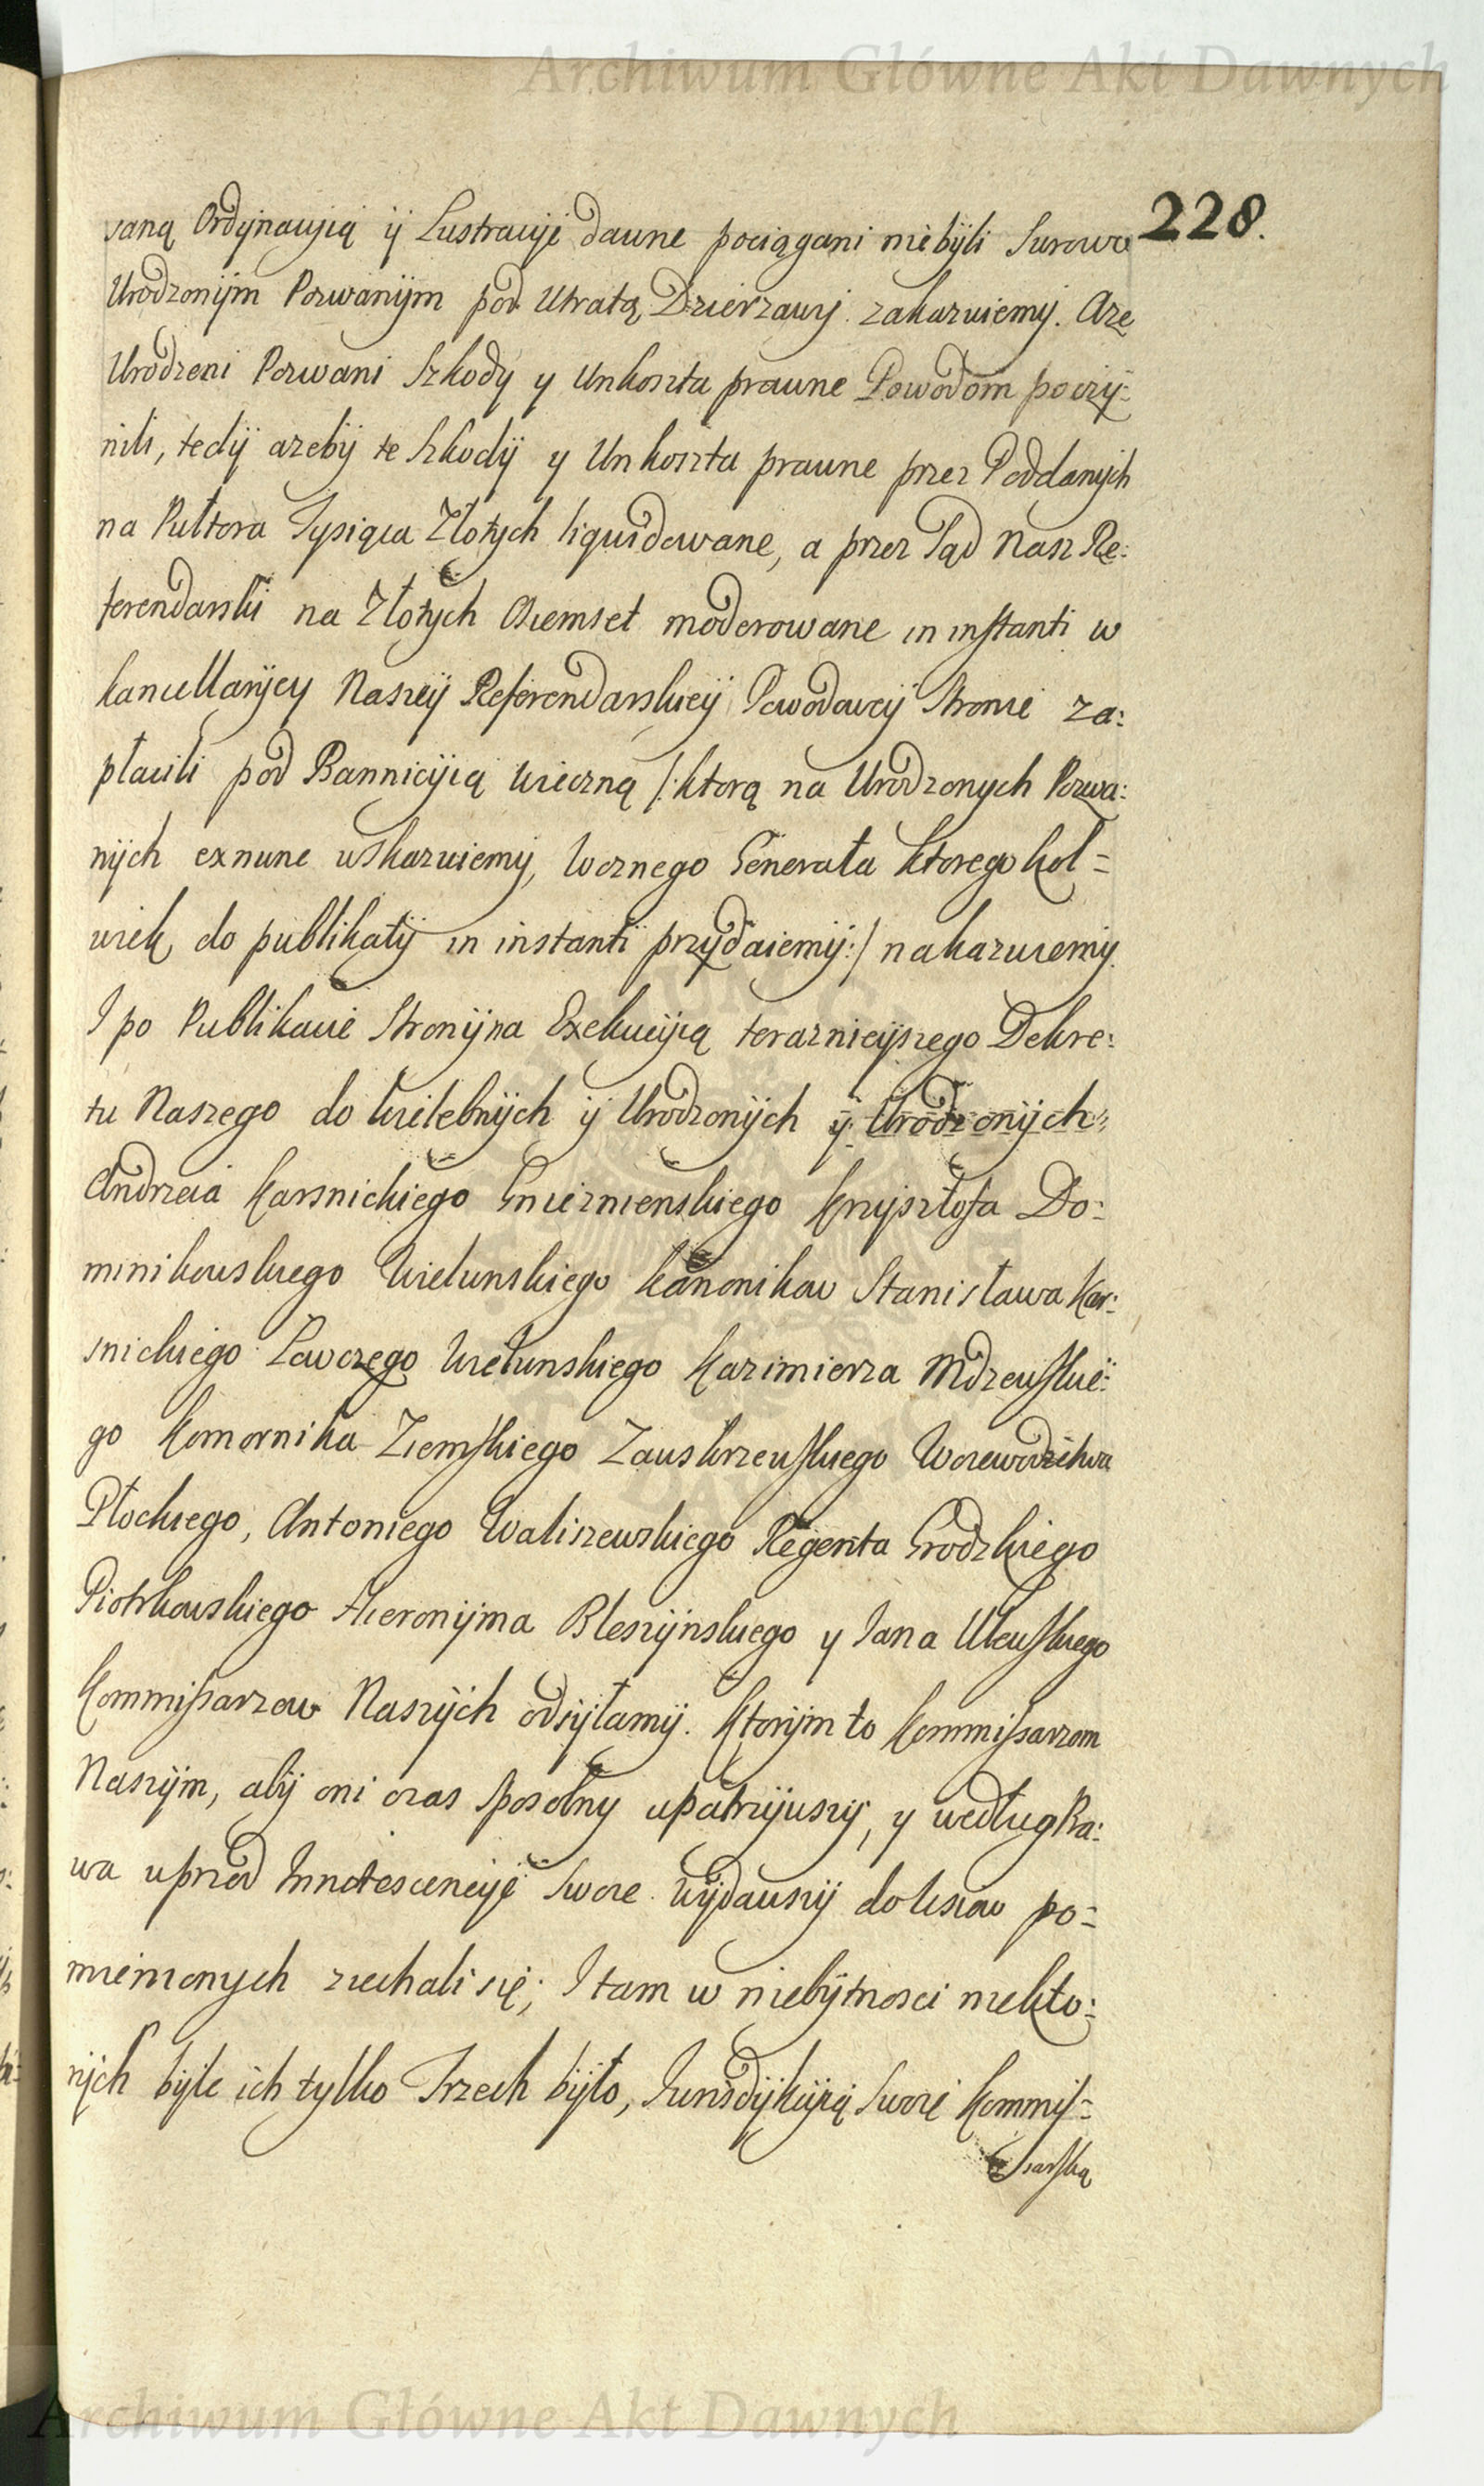 Archiwum Główne Akt Dawnych
228.
saną Ordynacyią ÿ Lustracyje dawne pociągani niebÿli Surowo
Urodzonÿm Pozwanÿm pod Utratą Dzierzawÿ zakazuiemÿ. Aze
Urodzeni Pozwani Szkody y Unkoszta prawne Powodom poczÿ=
nili, tedÿ azebÿ te Szkodÿ y Unkoszta prawne przez Poddanÿch
na Pułtora Tysiąca Złotych liquidowane, a przez Sąd Nasz Re:
ferendarski na Złotych Osiemset moderowane in instanti w
kancellarÿey Naszeÿ Referendarskieÿ Powodoweÿ Stronie za:
płacili pod Bannicÿią wieczną /: ktorą na Urodzonych Pozwa:
nÿch exnunc wskazuiemÿ, Woznego Generała ktoregokol=
wiek do publikatÿ in instanti przÿdaiemÿ:/ nakazuiemÿ.
I po Publikacie Stronÿ na Exekucÿią teraznieÿszego Dekre:
tu Naszego do Wielebnÿch ÿ Urodzonÿch ÿ Urodzonÿch
Andrzeia Karsnickiego Gnieznienskiego Krzÿsztofa Do:
minikowskiego Wielunskiego kanonikow Stanisława Kar:
snickiego Łowczego Wielunskiego Kazimierza Mdzewskie:
go Komornika Ziemskiego Zawskrzewskiego Woiewodztwa
Płockiego, Antoniego Waliszewskiego Regenta Grodzkiego
Piotrkowskiego Hieronÿma Bleszÿnskiego y Jana Ulewskiego
Kommissarzow Naszÿch odsÿłamÿ. Ktorÿm to Kommissarzom
Naszÿm, abÿ oni czas sposobny upatrzÿwszÿ, y według Pra:
wa uprzod Innotescencÿie Swoie wÿdawszÿ do Wsiow po=
mienionych ziechali się; I tam w niebÿtnosci niekto:
rÿch bÿle ich tylko Trzech bÿło, Jurisdÿkcÿią Swoię Kommis=
sarską
Archiwum Główne Akt Dawnych